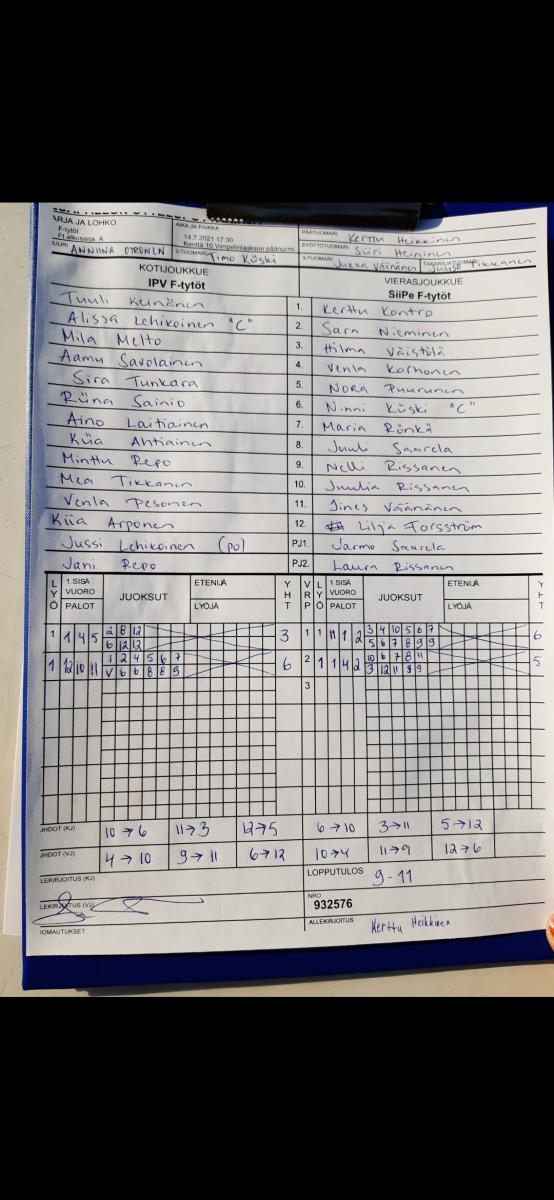 ARJA JA LOHKO
F-tytöt
F1 alkusarja A
AIKA JA PAIKKA
14.7.2021 17:30
Kenttä 10 Vimpelinlaakson päänurmi
PÄÄTUOMARI Kerttu Heikkinen
SYÖTTÖTUOMARI Siiri Heininen
ANNIINA OTRONEN
2-TUOMARI Timo Kuski
3-TUOMARI Jukka Väänänen
TAKARAJATUOMARI Juuso Tikkanen
KOTIJOUKKUE
IPV F-tytöt
VIERASJOUKKUE
SiiPe F-tytöt
Tuuli Keinänen 1. Kerttu Kontro
Alissa Lehikoinen "C" 2. Sara Nieminen
Mila Melto 3. Hilma Väistölä
Aamu Savolainen 4. Venla Korhonen
Sira Tunkara 5. Nora Puurunen
Riina Sainio 6. Ninni Kuski "C"
Aino Laitiainen 7. Maria Rönkä
Kiia Ahtiainen 8. Juuli Saarela
Minttu Repo 9. Nelli Rissanen
Mea Tikkanen 10. Juulia Rissanen
Venla Pesonen 11. Iines Väänänen
Kiia Arponen 12. Lilja Forsström
Jussi Lehikoinen (po) PJ1. Jarmo Saarela
Jani Repo PJ2. Laura Rissanen
LYÖ 1.SISÄ VUORO PALOT JUOKSUT ETENIJÄ LYÖJÄ YHT VRP LYÖ 1.SISÄ VUORO PALOT JUOKSUT ETENIJÄ LYÖJÄ YHT
1 1 4 5 2 8 12 3 1 1 11 1 2 3 4 10 5 6 7 6
6 12 12 5 6 7 8 9 9
1 12 10 11 1 2 4 5 6 7 6 2 1 1 4 2 10 6 7 8 11 5
V 6 6 8 8 9 3 12 11 9 9
3
JHDOT (KJ) 10→6 11→3 12→5 6→10 3→11 5→12
JHDOT (VJ) 4→10 9→11 6→12 10→4 11→9 12→6
LEKIRJOITUS (KJ)
LOPPUTULOS 9-11
LEKIRJOITUS (VJ)
NRO
932576
IOMAUTUKSET
ALLEKIRJOITUS Kerttu Heikkinen